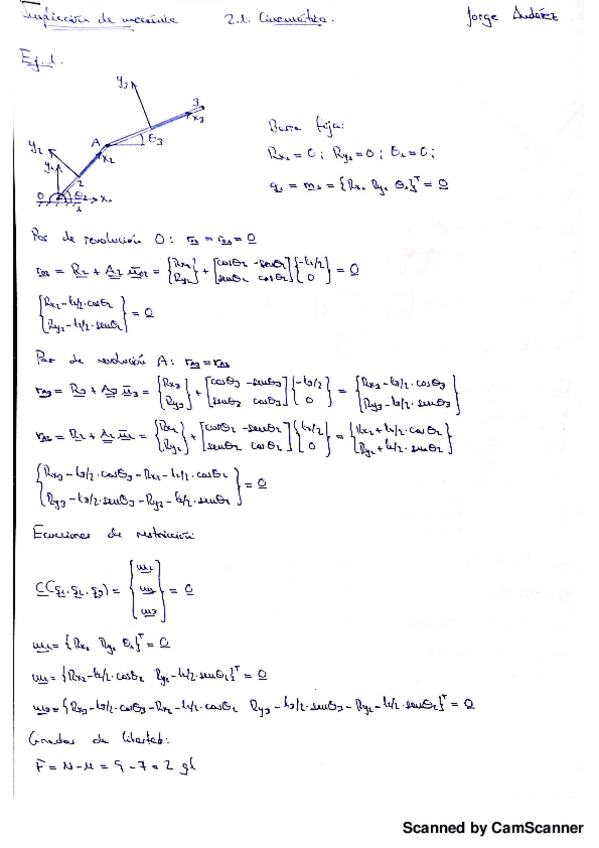 Ampliación de mecánica 2.1. Cinemática. Jorge
Ej. 1.
y3
3
x3
A
θ3
y2
x2
y1
2
O
θ2
1
x1
Barra fija:
Rx1 = 0 ; Ry1 = 0 ; θ1 = 0 ;
q1 = m1 = {Rx1 Ry1 θ1}^T = 0
Par de revolución O: = 0
= R2 + A2 ū = {Rx2 Ry2} + [cosθ2 -senθ2 senθ2 cosθ2] {-l2/2 0} = 0
{Rx2 - l2/2·cosθ2 Ry2 - l2/2·senθ2} = 0
Par de revolución A: rA3 = rA2
rA3 = R3 + A3 ū3 = {Rx3 Ry3} + [cosθ3 -senθ3 senθ3 cosθ3] {-l3/2 0} = {Rx3 - l3/2·cosθ3 Ry3 - l3/2·senθ3}
rA2 = R2 + A2 ū2 = {Rx2 Ry2} + [cosθ2 -senθ2 senθ2 cosθ2] {l2/2 0} = {Rx2 + l2/2·cosθ2 Ry2 + l2/2·senθ2}
{Rx3 - l3/2·cosθ3 - Rx2 - l2/2·cosθ2 Ry3 - l3/2·senθ3 - Ry2 - l2/2·senθ2} = 0
Ecuaciones de restricción:
C(q1, q2, q3) = {m1 m2 m3} = 0
m1 = {Rx1 Ry1 θ1}^T = 0
m2 = {Rx2 - l2/2·cosθ2 Ry2 - l2/2·senθ2}^T = 0
m3 = {Rx3 - l3/2·cosθ3 - Rx2 - l2/2·cosθ2 Ry3 - l3/2·senθ3 - Ry2 - l2/2·senθ2}^T = 0
Grados de libertad:
F = N - M = 9 - 7 = 2 gl
Scanned by CamScanner